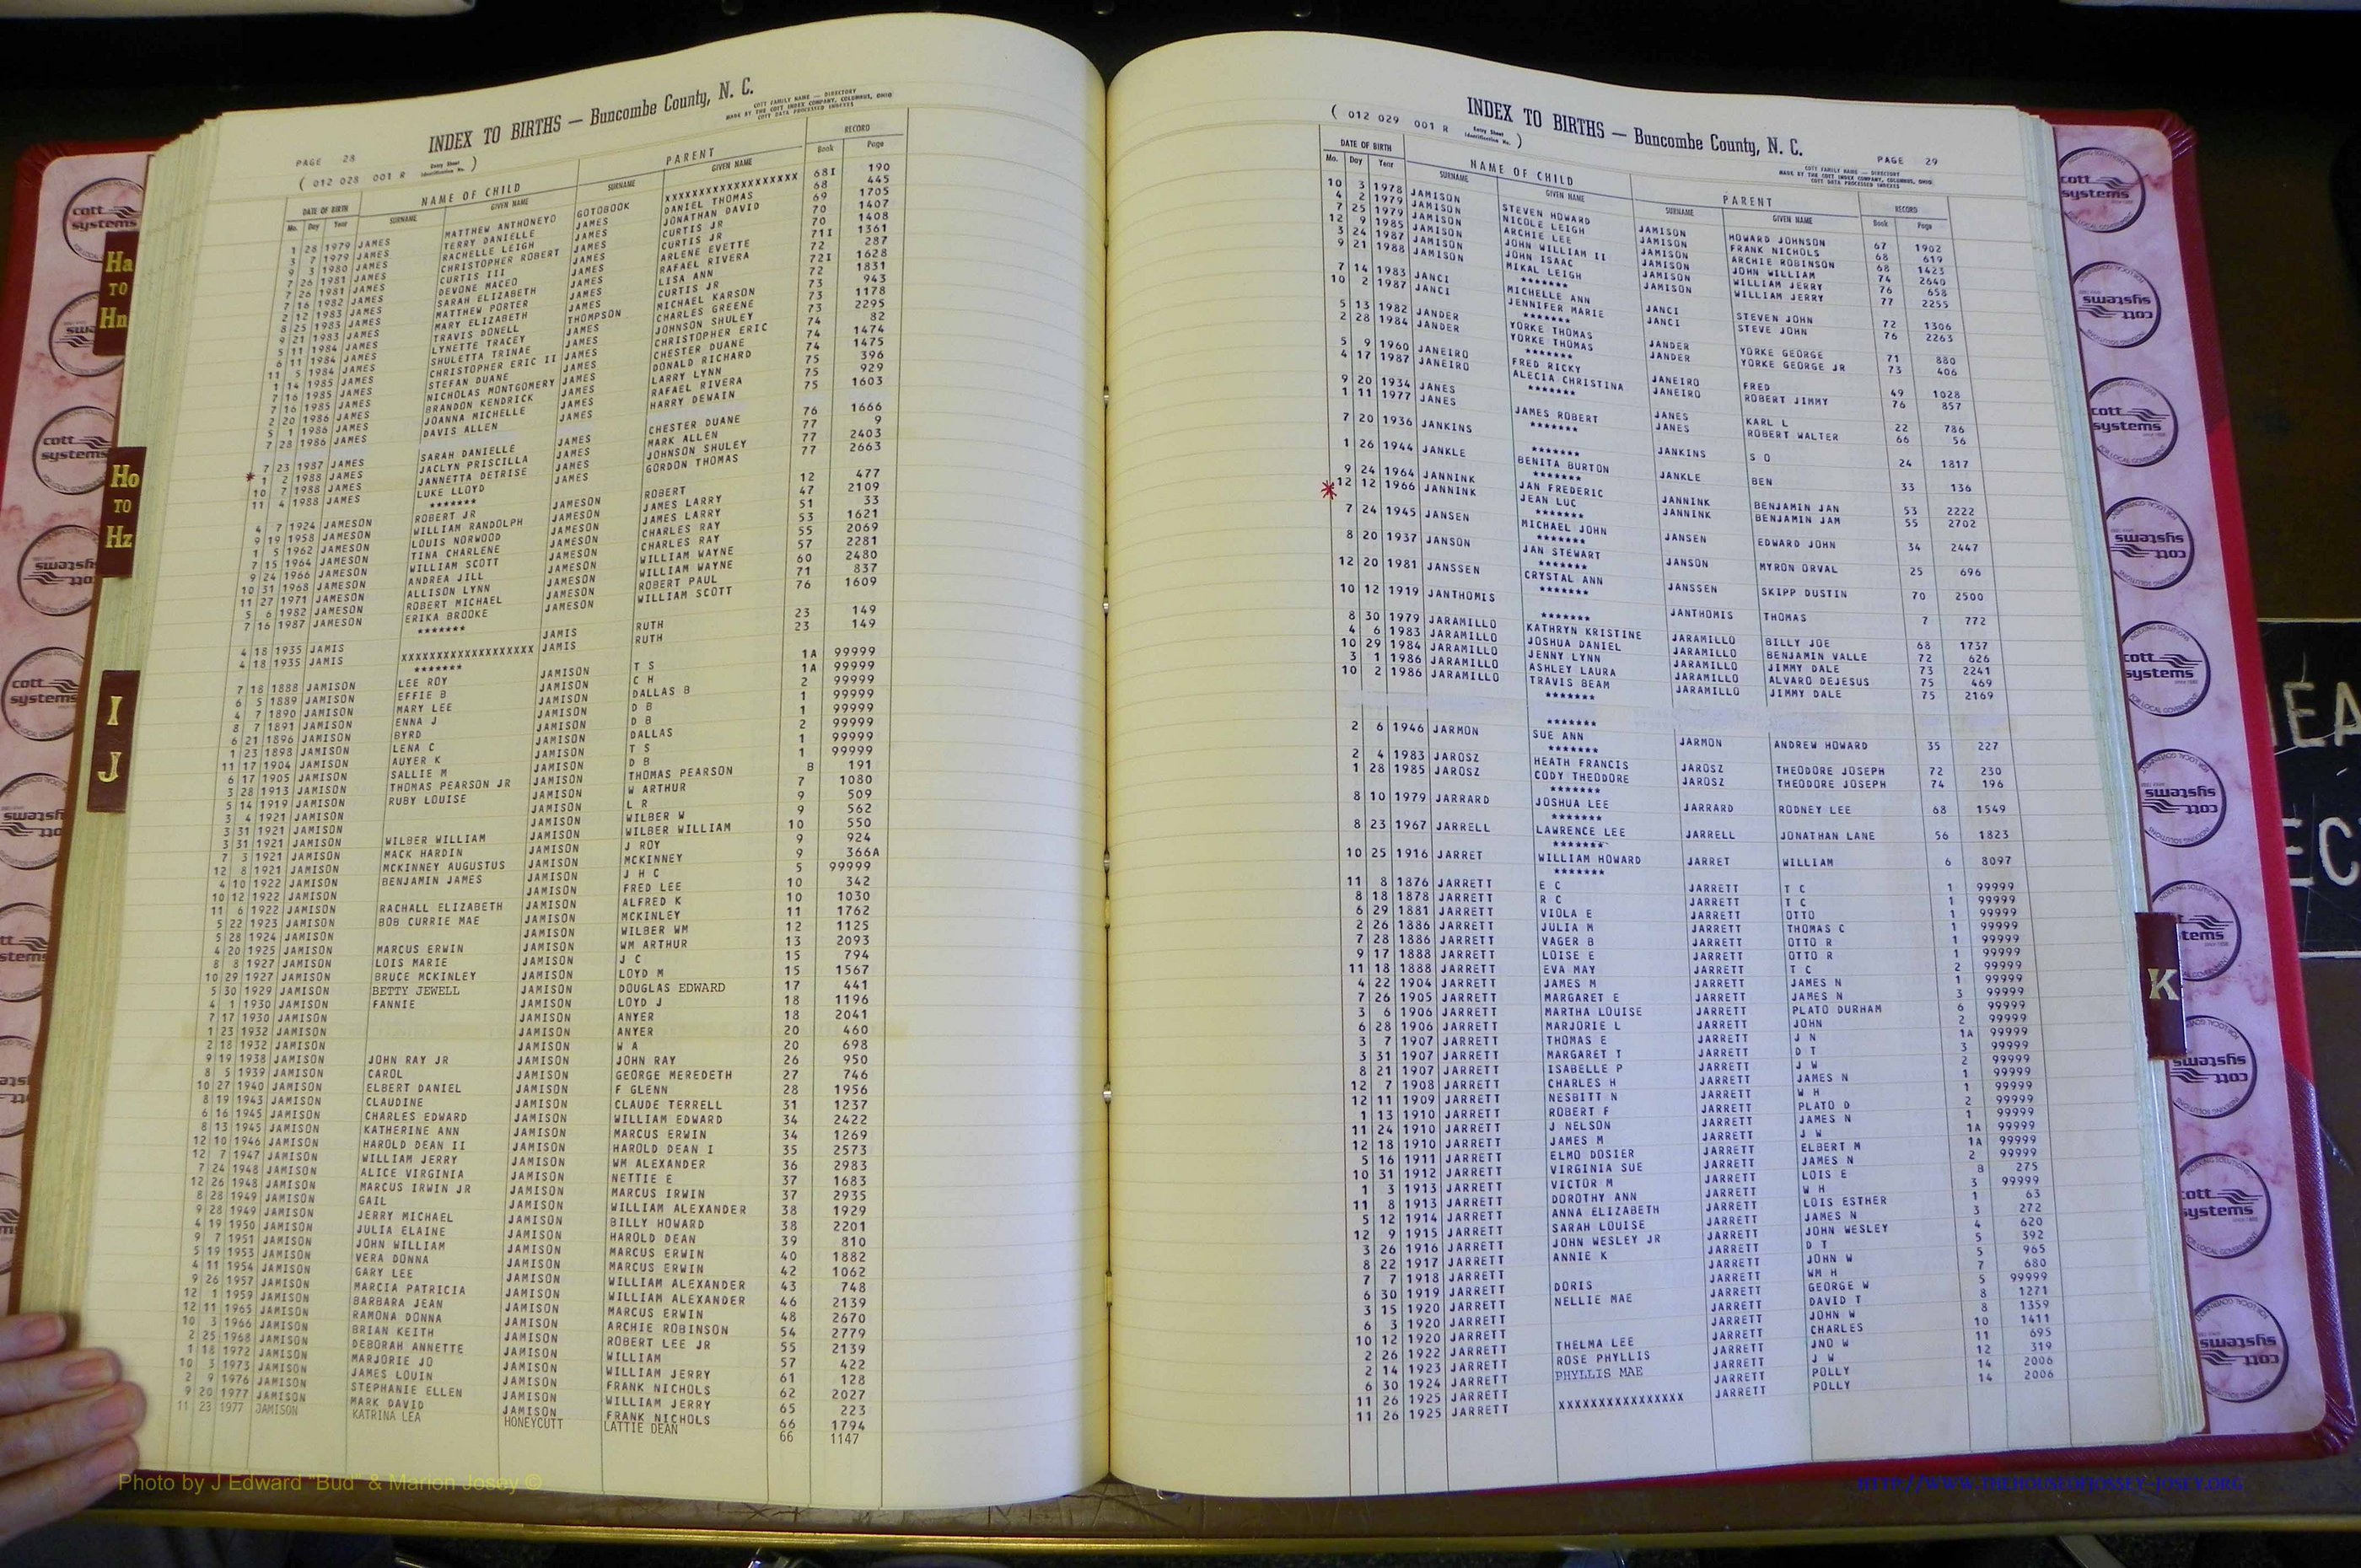 INDEX TO BIRTHS — Buncombe County, N. C.
COTT FAMILY NAME — DIRECTORY
MADE BY THE COTT INDEX COMPANY, COLUMBUS, OHIO
COTT DATA PROCESSED INDEXES
PAGE 28
( 012 028 001 R Entry Sheet Identification No. )
DATE OF BIRTH NAME OF CHILD PARENT RECORD
Mo. Day Year SURNAME GIVEN NAME SURNAME GIVEN NAME Book Page
1 28 1979 JAMES MATTHEW ANTHONEYO GOTOBOOK XXXXXXXXXXXXXXXXXX 68I 190
3 7 1979 JAMES TERRY DANIELLE JAMES DANIEL THOMAS 68 445
9 3 1980 JAMES RACHELLE LEIGH JAMES JONATHAN DAVID 69 1705
7 26 1981 JAMES CHRISTOPHER ROBERT JAMES CURTIS JR 70 1407
7 26 1981 JAMES CURTIS III JAMES CURTIS JR 70 1408
7 16 1982 JAMES DEVONE MACEO JAMES ARLENE EVETTE 71I 1361
2 12 1983 JAMES SARAH ELIZABETH JAMES RAFAEL RIVERA 72 287
8 25 1983 JAMES MATTHEW PORTER JAMES LISA ANN 72I 1628
9 21 1983 JAMES MARY ELIZABETH JAMES CURTIS JR 72 1831
5 11 1984 JAMES TRAVIS DONELL THOMPSON MICHAEL KARSON 73 943
6 11 1984 JAMES LYNETTE TRACEY JAMES CHARLES GREENE 73 1178
11 5 1984 JAMES SHULETTA TRINAE JAMES JOHNSON SHULEY 73 2295
1 14 1985 JAMES CHRISTOPHER ERIC II JAMES CHRISTOPHER ERIC 74 82
7 16 1985 JAMES STEFAN DUANE JAMES CHESTER DUANE 74 1474
7 16 1985 JAMES NICHOLAS MONTGOMERY JAMES DONALD RICHARD 74 1475
2 20 1986 JAMES BRANDON KENDRICK JAMES LARRY LYNN 75 396
5 1 1986 JAMES JOANNA MICHELLE JAMES RAFAEL RIVERA 75 929
7 28 1986 JAMES DAVIS ALLEN JAMES HARRY DEWAIN 75 1603
7 23 1987 JAMES SARAH DANIELLE JAMES CHESTER DUANE 76 1666
* 1 2 1988 JAMES JACLYN PRISCILLA JAMES MARK ALLEN 77 9
10 7 1988 JAMES JANNETTA DETRISE JAMES JOHNSON SHULEY 77 2403
11 4 1988 JAMES LUKE LLOYD JAMES GORDON THOMAS 77 2663
*******
4 7 1924 JAMESON ROBERT JR JAMESON ROBERT 12 477
9 19 1958 JAMESON WILLIAM RANDOLPH JAMESON JAMES LARRY 47 2109
1 5 1962 JAMESON LOUIS NORWOOD JAMESON JAMES LARRY 51 33
7 15 1964 JAMESON TINA CHARLENE JAMESON CHARLES RAY 53 1621
9 24 1966 JAMESON WILLIAM SCOTT JAMESON CHARLES RAY 55 2069
10 31 1968 JAMESON ANDREA JILL JAMESON WILLIAM WAYNE 57 2281
11 27 1971 JAMESON ALLISON LYNN JAMESON WILLIAM WAYNE 60 2480
5 6 1982 JAMESON ROBERT MICHAEL JAMESON ROBERT PAUL 71 837
7 16 1987 JAMESON ERIKA BROOKE JAMESON WILLIAM SCOTT 76 1609
*******
4 18 1935 JAMIS JAMIS RUTH 23 149
4 18 1935 JAMIS XXXXXXXXXXXXXXXXXX JAMIS RUTH 23 149
*******
7 18 1888 JAMISON LEE ROY JAMISON T S 1A 99999
6 5 1889 JAMISON EFFIE B JAMISON C H 1A 99999
4 7 1890 JAMISON MARY LEE JAMISON DALLAS B 2 99999
8 7 1891 JAMISON ENNA J JAMISON D B 1 99999
6 21 1896 JAMISON BYRD JAMISON D B 1 99999
1 23 1898 JAMISON LENA C JAMISON DALLAS 2 99999
11 17 1904 JAMISON AUYER K JAMISON T S 1 99999
6 17 1905 JAMISON SALLIE M JAMISON D B 1 99999
3 28 1913 JAMISON THOMAS PEARSON JR JAMISON THOMAS PEARSON B 191
5 14 1919 JAMISON RUBY LOUISE JAMISON W ARTHUR 7 1080
3 4 1921 JAMISON JAMISON L R 9 509
3 31 1921 JAMISON JAMISON WILBER W 9 562
3 31 1921 JAMISON WILBER WILLIAM JAMISON WILBER WILLIAM 10 550
7 3 1921 JAMISON MACK HARDIN JAMISON J ROY 9 924
12 8 1921 JAMISON MCKINNEY AUGUSTUS JAMISON MCKINNEY 9 366A
4 10 1922 JAMISON BENJAMIN JAMES JAMISON J H C 5 99999
10 12 1922 JAMISON JAMISON FRED LEE 10 342
11 6 1922 JAMISON RACHALL ELIZABETH JAMISON ALFRED K 10 1030
5 22 1923 JAMISON BOB CURRIE MAE JAMISON MCKINLEY 11 1762
5 28 1924 JAMISON JAMISON WILBER WM 12 1125
4 20 1925 JAMISON MARCUS ERWIN JAMISON WM ARTHUR 13 2093
8 8 1927 JAMISON LOIS MARIE JAMISON J C 15 794
10 29 1927 JAMISON BRUCE MCKINLEY JAMISON LOYD M 15 1567
5 30 1929 JAMISON BETTY JEWELL JAMISON DOUGLAS EDWARD 17 441
4 1 1930 JAMISON FANNIE JAMISON LOYD J 18 1196
7 17 1930 JAMISON JAMISON ANYER 18 2041
1 23 1932 JAMISON JAMISON ANYER 20 460
2 18 1932 JAMISON JAMISON W A 20 698
9 19 1938 JAMISON JOHN RAY JR JAMISON JOHN RAY 26 950
8 5 1939 JAMISON CAROL JAMISON GEORGE MEREDETH 27 746
10 27 1940 JAMISON ELBERT DANIEL JAMISON F GLENN 28 1956
8 19 1943 JAMISON CLAUDINE JAMISON CLAUDE TERRELL 31 1237
6 16 1945 JAMISON CHARLES EDWARD JAMISON WILLIAM EDWARD 34 2422
8 13 1945 JAMISON KATHERINE ANN JAMISON MARCUS ERWIN 34 1269
12 10 1946 JAMISON HAROLD DEAN II JAMISON HAROLD DEAN I 35 2573
12 7 1947 JAMISON WILLIAM JERRY JAMISON WM ALEXANDER 36 2983
7 24 1948 JAMISON ALICE VIRGINIA JAMISON NETTIE E 37 1683
12 26 1948 JAMISON MARCUS IRWIN JR JAMISON MARCUS IRWIN 37 2935
8 28 1949 JAMISON GAIL JAMISON WILLIAM ALEXANDER 38 1929
9 28 1949 JAMISON JERRY MICHAEL JAMISON BILLY HOWARD 38 2201
4 19 1950 JAMISON JULIA ELAINE JAMISON HAROLD DEAN 39 810
9 7 1951 JAMISON JOHN WILLIAM JAMISON MARCUS ERWIN 40 1882
5 19 1953 JAMISON VERA DONNA JAMISON MARCUS ERWIN 42 1062
4 11 1954 JAMISON GARY LEE JAMISON WILLIAM ALEXANDER 43 748
9 26 1957 JAMISON MARCIA PATRICIA JAMISON WILLIAM ALEXANDER 46 2139
12 1 1959 JAMISON BARBARA JEAN JAMISON MARCUS ERWIN 48 2670
12 11 1965 JAMISON RAMONA DONNA JAMISON ARCHIE ROBINSON 54 2779
10 3 1966 JAMISON BRIAN KEITH JAMISON ROBERT LEE JR 55 2139
2 25 1968 JAMISON DEBORAH ANNETTE JAMISON WILLIAM 57 422
1 18 1972 JAMISON MARJORIE JO JAMISON WILLIAM JERRY 61 128
10 3 1973 JAMISON JAMES LOUIN JAMISON FRANK NICHOLS 62 2027
2 9 1976 JAMISON STEPHANIE ELLEN JAMISON WILLIAM JERRY 65 223
9 20 1977 JAMISON MARK DAVID JAMISON FRANK NICHOLS 66 1794
11 23 1977 JAMISON KATRINA LEA HONEYCUTT LATTIE DEAN 66 1147
INDEX TO BIRTHS — Buncombe County, N. C.
( 012 029 001 R Entry Sheet Identification No. )
PAGE 29
COTT FAMILY NAME — DIRECTORY
MADE BY THE COTT INDEX COMPANY, COLUMBUS, OHIO
COTT DATA PROCESSED INDEXES
DATE OF BIRTH NAME OF CHILD PARENT RECORD
Mo. Day Year SURNAME GIVEN NAME SURNAME GIVEN NAME Book Page
10 3 1978 JAMISON STEVEN HOWARD JAMISON HOWARD JOHNSON 67 1902
4 2 1979 JAMISON NICOLE LEIGH JAMISON FRANK NICHOLS 68 619
7 25 1979 JAMISON ARCHIE LEE JAMISON ARCHIE ROBINSON 68 1423
12 9 1985 JAMISON JOHN WILLIAM II JAMISON JOHN WILLIAM 74 2640
3 24 1987 JAMISON JOHN ISAAC JAMISON WILLIAM JERRY 76 658
9 21 1988 JAMISON MIKAL LEIGH JAMISON WILLIAM JERRY 77 2255
*******
7 14 1983 JANCI MICHELLE ANN JANCI STEVEN JOHN 72 1306
10 2 1987 JANCI JENNIFER MARIE JANCI STEVE JOHN 76 2263
*******
5 13 1982 JANDER YORKE THOMAS JANDER YORKE GEORGE 71 880
2 28 1984 JANDER YORKE THOMAS JANDER YORKE GEORGE JR 73 406
*******
5 9 1960 JANEIRO FRED RICKY JANEIRO FRED 49 1028
4 17 1987 JANEIRO ALECIA CHRISTINA JANEIRO ROBERT JIMMY 76 857
*******
9 20 1934 JANES JANES KARL L 22 786
1 11 1977 JANES JAMES ROBERT JANES ROBERT WALTER 66 56
*******
7 20 1936 JANKINS JANKINS S O 24 1817
*******
1 26 1944 JANKLE BENITA BURTON JANKLE BEN 33 136
*******
9 24 1964 JANNINK JAN FREDERIC JANNINK BENJAMIN JAN 53 2222
* 12 12 1966 JANNINK JEAN LUC JANNINK BENJAMIN JAM 55 2702
*******
7 24 1945 JANSEN MICHAEL JOHN JANSEN EDWARD JOHN 34 2447
*******
8 20 1937 JANSON JAN STEWART JANSON MYRON ORVAL 25 696
*******
12 20 1981 JANSSEN CRYSTAL ANN JANSSEN SKIPP DUSTIN 70 2500
*******
10 12 1919 JANTHOMIS JANTHOMIS THOMAS 7 772
*******
8 30 1979 JARAMILLO KATHRYN KRISTINE JARAMILLO BILLY JOE 68 1737
4 6 1983 JARAMILLO JOSHUA DANIEL JARAMILLO BENJAMIN VALLE 72 626
10 29 1984 JARAMILLO JENNY LYNN JARAMILLO JIMMY DALE 73 2241
3 1 1986 JARAMILLO ASHLEY LAURA JARAMILLO ALVARO DEJESUS 75 469
10 2 1986 JARAMILLO TRAVIS BEAM JARAMILLO JIMMY DALE 75 2169
*******
*******
2 6 1946 JARMON SUE ANN JARMON ANDREW HOWARD 35 227
*******
2 4 1983 JAROSZ HEATH FRANCIS JAROSZ THEODORE JOSEPH 72 230
1 28 1985 JAROSZ CODY THEODORE JAROSZ THEODORE JOSEPH 74 196
*******
8 10 1979 JARRARD JOSHUA LEE JARRARD RODNEY LEE 68 1549
*******
8 23 1967 JARRELL LAWRENCE LEE JARRELL JONATHAN LANE 56 1823
*******
10 25 1916 JARRET WILLIAM HOWARD JARRET WILLIAM 6 8097
*******
11 8 1876 JARRETT E C JARRETT T C 1 99999
8 18 1878 JARRETT R C JARRETT T C 1 99999
6 29 1881 JARRETT VIOLA E JARRETT OTTO 1 99999
2 26 1886 JARRETT JULIA M JARRETT THOMAS C 1 99999
7 28 1886 JARRETT VAGER B JARRETT OTTO R 1 99999
9 17 1888 JARRETT LOISE E JARRETT OTTO R 1 99999
11 18 1888 JARRETT EVA MAY JARRETT T C 2 99999
4 22 1904 JARRETT JAMES M JARRETT JAMES N 1 99999
7 26 1905 JARRETT MARGARET E JARRETT JAMES N 3 99999
3 6 1906 JARRETT MARTHA LOUISE JARRETT PLATO DURHAM 6 99999
6 28 1906 JARRETT MARJORIE L JARRETT JOHN 2 99999
3 7 1907 JARRETT THOMAS E JARRETT J N 1A 99999
3 31 1907 JARRETT MARGARET T JARRETT D T 3 99999
8 21 1907 JARRETT ISABELLE P JARRETT J W 2 99999
12 7 1908 JARRETT CHARLES H JARRETT JAMES N 1 99999
12 11 1909 JARRETT NESBITT N JARRETT W H 1 99999
1 13 1910 JARRETT ROBERT F JARRETT PLATO D 2 99999
11 24 1910 JARRETT J NELSON JARRETT JAMES N 1 99999
12 18 1910 JARRETT JAMES M JARRETT J W 1A 99999
5 16 1911 JARRETT ELMO DOSIER JARRETT ELBERT M 1A 99999
10 31 1912 JARRETT VIRGINIA SUE JARRETT JAMES N 2 99999
1 3 1913 JARRETT VICTOR M JARRETT LOIS E B 275
11 8 1913 JARRETT DOROTHY ANN JARRETT W H 3 99999
5 12 1914 JARRETT ANNA ELIZABETH JARRETT LOIS ESTHER 1 63
12 9 1915 JARRETT SARAH LOUISE JARRETT JAMES N 3 272
3 26 1916 JARRETT JOHN WESLEY JR JARRETT JOHN WESLEY 4 620
8 22 1917 JARRETT ANNIE K JARRETT D T 5 392
7 7 1918 JARRETT JARRETT JOHN W 5 965
6 30 1919 JARRETT DORIS JARRETT WM H 7 680
3 15 1920 JARRETT NELLIE MAE JARRETT GEORGE W 5 99999
6 3 1920 JARRETT JARRETT DAVID T 8 1271
10 12 1920 JARRETT JARRETT JOHN W 8 1359
2 26 1922 JARRETT THELMA LEE JARRETT CHARLES 10 1411
2 14 1923 JARRETT ROSE PHYLLIS JARRETT JNO W 11 695
6 30 1924 JARRETT PHYLLIS MAE JARRETT J W 12 319
11 26 1925 JARRETT JARRETT POLLY 14 2006
11 26 1925 JARRETT XXXXXXXXXXXXXXXX JARRETT POLLY 14 2006
Ha TO Hn
Ho TO Hz
I J
K
cott systems
Photo by J Edward "Bud" & Marion Josey ©
HTTP://WWW.THEHOUSEOFJOSSEY-JOSEY.ORG